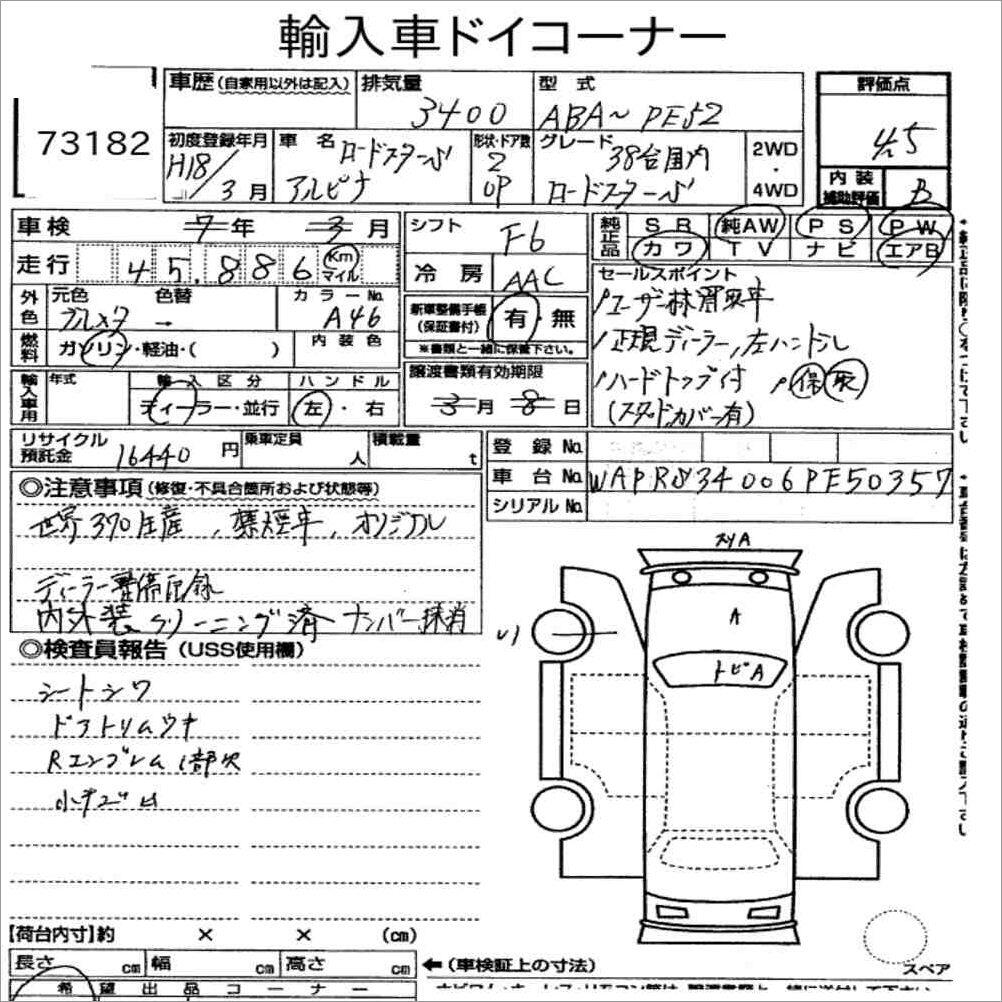 輸入車ドイコーナー
73182
車歴 (自家用以外は記入) 排気量 3400 型式 ABA~PE52 評価点 4.5
初度登録年月 H18/3月 車名 ロードスターS アルピナ 形状・ドア数 2 OP グレード 38台国内 ロードスターS 2WD・4WD 内装補助評価 B
車検 7年 3月 シフト F6 純正品 SR 純AW PS PW
カワ TV ナビ エアB
走行 45,886 Km マイル 冷房 AAC セールスポイント
外色 元色 ブルメタ 色替 → カラーNo. A46 新車整備手帳(保証書付) 有・無
※書類と一緒に保管下さい。
ユーザー様買取車
正規ディーラー,左ハンドル
ハードトップ付 保 取
(スタンド,カバー有)
燃料 ガソリン・軽油・( ) 内装色
輸入車用 年式 輸入区分 ディーラー・並行 ハンドル 左・右
譲渡書類有効期限 3月 8日
リサイクル預託金 16440円 乗車定員 人 積載量 t
登録No.
車台No. WAPRS34006PE50357
シリアルNo.
◎注意事項 (修復・不具合箇所および状態等)
世界370生産,禁煙車,オリジナル
ディーラー整備記録
内外装クリーニング済 ナンバー抹消
◎検査員報告 (USS使用欄)
シートシワ
ドアトリムウキ
Rエンブレム1部欠
小キズ凹
スリA
A
トビA
【荷台内寸】約 × × (cm)
長さ cm 幅 cm 高さ cm ←(車検証上の寸法)
スペア
希望出品コーナー